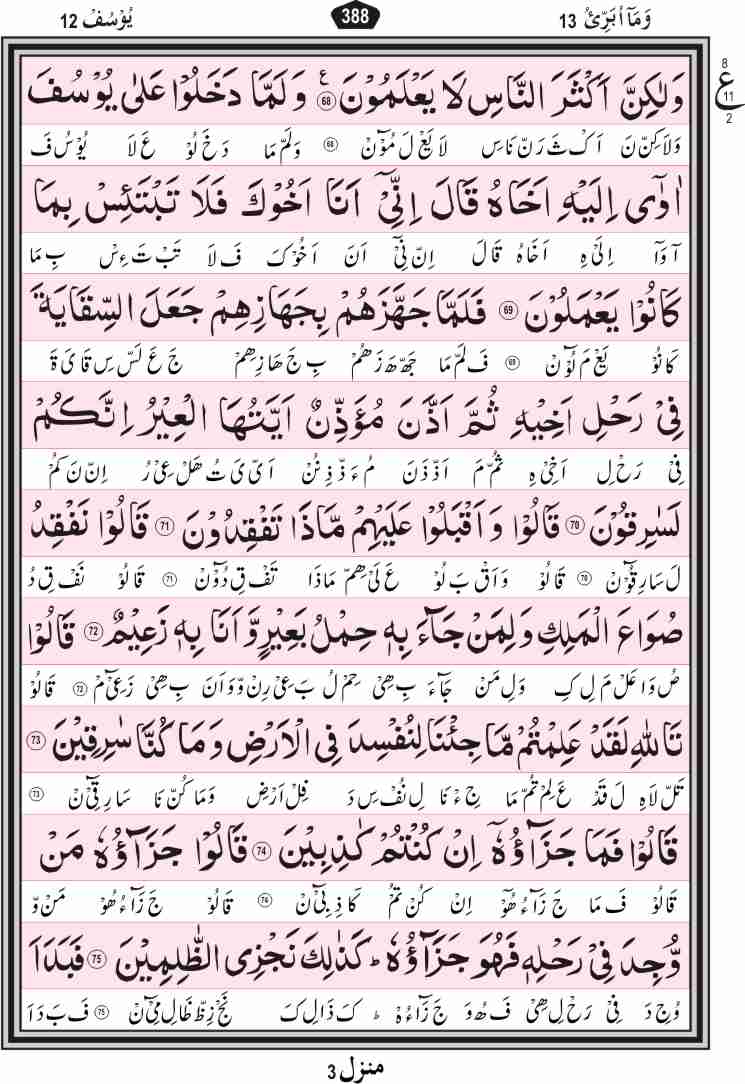 وَمَاۤ اُبَرِّئُ 13 388 يُوْسُفْ 12
8
ع
11
2
وَلٰكِنَّ اَكْثَرَ النَّاسِ لَا يَعْلَمُوْنَ ﴿68﴾ ع وَلَمَّا دَخَلُوْا عَلٰى يُوْسُفَ
وَلَاكِنّ نَ اَكْ ثَ رَنّ نَاسِ لَا يَعْ لَ مُوْٓنْ 68 وَلَمّ مَا دَ خَ لُوْ عَ لَا يُوْ سُ فَ
اٰوٰۤى اِلَيْهِ اَخَاهُ قَالَ اِنِّيْۤ اَنَا اَخُوْكَ فَلَا تَبْتَئِسْ بِمَا
آ وَآ اِلَىْ هِ اَخَاهُ قَالَ اِنّ نِىْٓ اَنَ اَخُوْكَ فَ لَا تَبْ تَ ءِسْ بِ مَا
كَانُوْا يَعْمَلُوْنَ ﴿69﴾ فَلَمَّا جَهَّزَهُمْ بِجَهَازِهِمْ جَعَلَ السِّقَايَةَ
كَا نُوْ يَعْ مَ لُوْٓنْ 69 فَ لَمّ مَا جَهّ هَ زَ هُمْ بِ جَ هَا زِهِمْ جَ عَ لَسّ سِ قَا يَ ةَ
فِيْ رَحْلِ اَخِيْهِ ثُمَّ اَذَّنَ مُؤَذِّنٌ اَيَّتُهَا الْعِيْرُ اِنَّكُمْ
فِىْ رَحْ لِ اَخِىْ هِ ثُمّ مَ اَذّ ذَنَ مُ ءَ ذّ ذِ نُنْ اَىّ ىَ تُ هَلْ عِىْ رُ اِنّ نَ كُمْ
لَسٰرِقُوْنَ ﴿70﴾ قَالُوْا وَاَقْبَلُوْا عَلَيْهِمْ مَّاذَا تَفْقِدُوْنَ ﴿71﴾ قَالُوْا نَفْقِدُ
لَ سَارِ قُوْٓنْ 70 قَا لُوْ وَ اَقْ بَ لُوْ عَ لَىْ هِمّ مَاذَا تَفْ قِ دُوْٓنْ 71 قَا لُوْ نَفْ قِ دُ
صُوَاعَ الْمَلِكِ وَلِمَنْ جَآءَ بِهٖ حِمْلُ بَعِيْرٍ وَّاَنَا بِهٖ زَعِيْمٌ ﴿72﴾ قَالُوْا
صُ وَا عَلْ مَ لِ كِ وَ لِ مَنْ جَآءَ بِ هِىْ حِمْ لُ بَ عِىْ رِنْ وّ وَ اَنَ بِ هِىْ زَ عِىْٓ مْ 72 قَا لُوْ
تَاللّٰهِ لَقَدْ عَلِمْتُمْ مَّا جِئْنَا لِنُفْسِدَ فِي الْاَرْضِ وَمَا كُنَّا سٰرِقِيْنَ ﴿73﴾
تَلّ لَاهِ لَ قَدْ عَ لِمْ تُمّ مَا جِءْ نَا لِ نُفْ سِ دَ فِلْ اَرْضِ وَ مَا كُنّ نَا سَا رِ قِىْٓ نْ 73
قَالُوْا فَمَا جَزَآؤُهٗۤ اِنْ كُنْتُمْ كٰذِبِيْنَ ﴿74﴾ قَالُوْا جَزَآؤُهٗ مَنْ
قَا لُوْ فَ مَا جَ زَآءُ هُوْٓ اِنْ كُنْ تُمْ كَا ذِ بِىْٓ نْ 74 قَا لُوْ جَ زَآءُ هُوْ مَنْ وّ
وُّجِدَ فِيْ رَحْلِهٖ فَهُوَ جَزَآؤُهٗ ؕ كَذٰلِكَ نَجْزِي الظّٰلِمِيْنَ ﴿75﴾ فَبَدَاَ
وُ جِ دَ فِىْ رَحْ لِ هِىْ فَ هُ وَ جَ زَآءُ هْ ؕ كَ ذَا لِ كَ نَجْ زِظّ ظَا لِ مِىْٓ نْ 75 فَ بَ دَ اَ
منزل 3